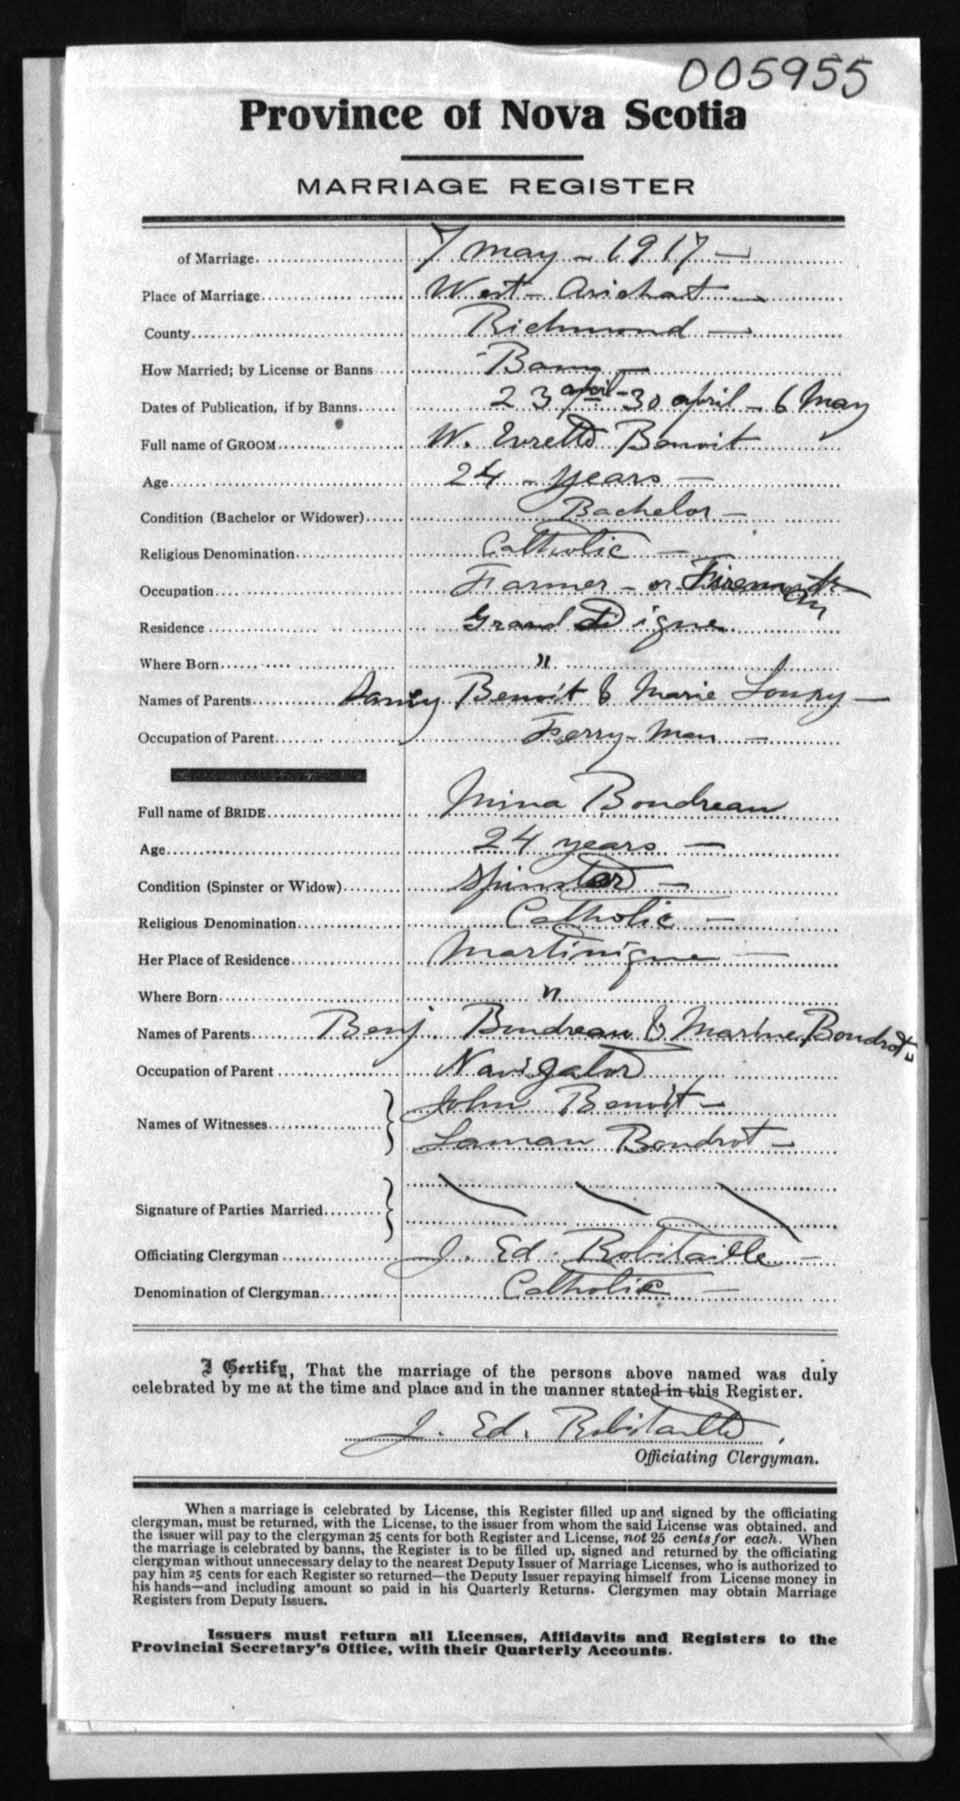 005955
Province of Nova Scotia
MARRIAGE REGISTER
of Marriage 7 May - 1917 -
Place of Marriage West - Arichat -
County Richmond -
How Married; by License or Banns Banns -
Dates of Publication, if by Banns 23 april - 30 april - 6 May
Full name of GROOM W. Evrett Benoit
Age 24 - years -
Condition (Bachelor or Widower) Bachelor -
Religious Denomination Catholic -
Occupation Farmer - or Fireman
Residence Grand Digue
Where Born "
Names of Parents Benoit & Marie
Occupation of Parent Ferry-Man -
Full name of BRIDE Mina Boudreau
Age 24 years -
Condition (Spinster or Widow) Spinster -
Religious Denomination Catholic -
Her Place of Residence Martinique -
Where Born "
Names of Parents Benj. Boudreau & Marine Boudrot
Occupation of Parent Navigator
Names of Witnesses John Benoit -
Laman Boudrot -
Signature of Parties Married
Officiating Clergyman J. Ed. Robitaille -
Denomination of Clergyman Catholic -
I Certify, That the marriage of the persons above named was duly
celebrated by me at the time and place and in the manner stated in this Register.
J. Ed. Robitaille
Officiating Clergyman.
When a marriage is celebrated by License, this Register filled up and signed by the officiating
clergyman, must be returned, with the License, to the issuer from whom the said License was obtained, and
the issuer will pay to the clergyman 25 cents for both Register and License, not 25 cents for each. When
the marriage is celebrated by banns, the Register is to be filled up, signed and returned by the officiating
clergyman without unnecessary delay to the nearest Deputy Issuer of Marriage Licenses, who is authorized to
pay him 25 cents for each Register so returned—the Deputy Issuer repaying himself from License money in
his hands—and including amount so paid in his Quarterly Returns. Clergymen may obtain Marriage
Registers from Deputy Issuers.
Issuers must return all Licenses, Affidavits and Registers to the
Provincial Secretary's Office, with their Quarterly Accounts.